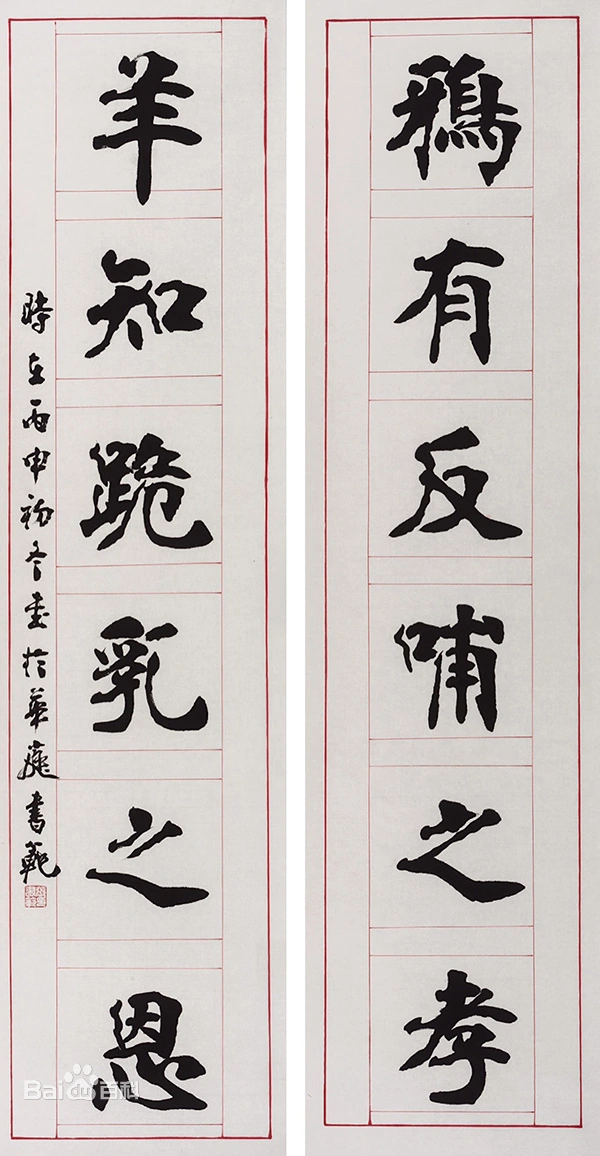 鴉有反哺之孝
羊知跪乳之恩
時在丙申初冬書於華庭書範
Bai du 百科